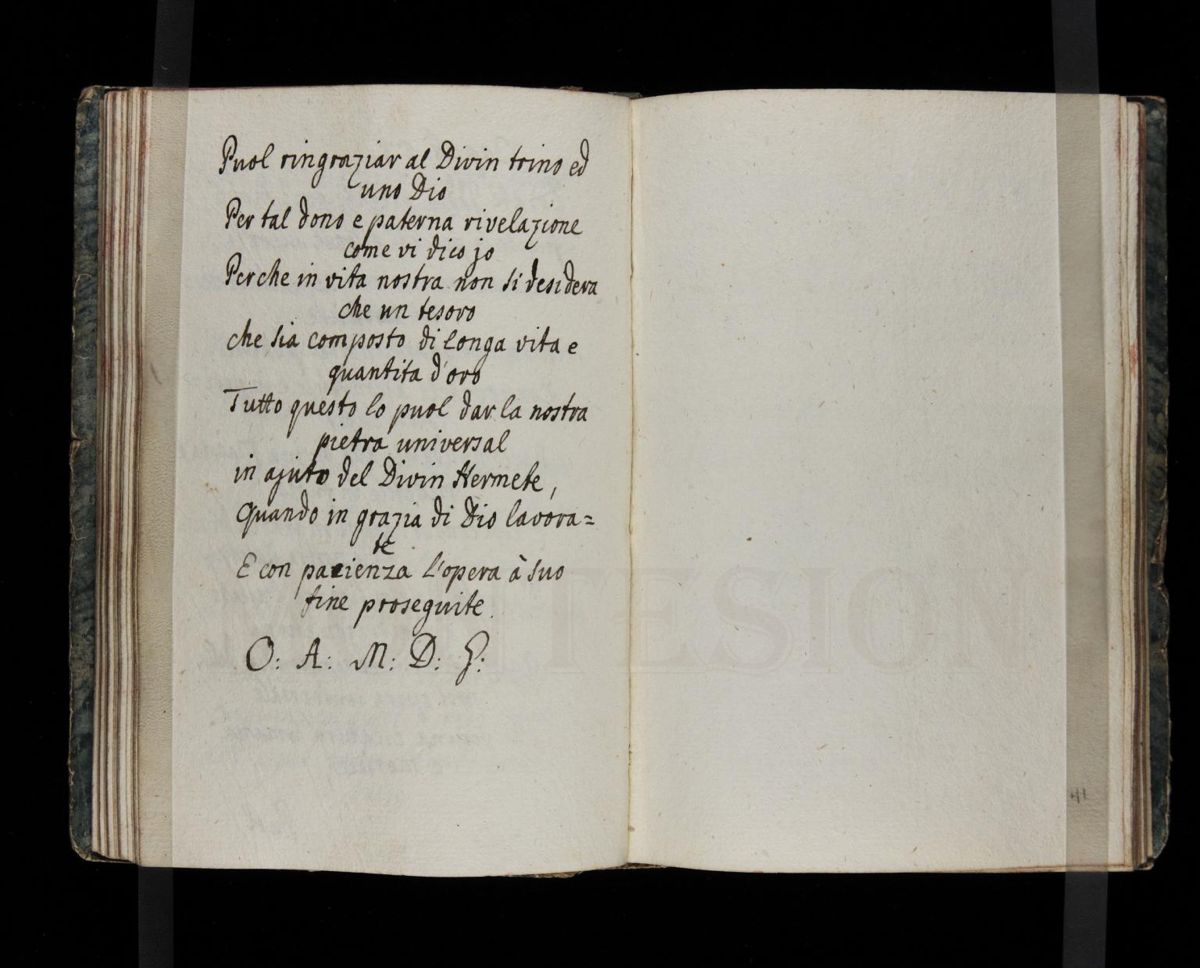 Puol ringraziar al Divin trino ed
uno Dio
Per tal dono e paterna rivelazione
come vi dico jo
Perche in vita nostra non si desidera
che un tesoro
che sia composto di longa vita e
quantita d'oro
Tutto questo lo puol dar la nostra
pietra universal
in ajuto del Divin Hermete,
Quando in grazia di Dio lavora=
te
E con pazienza l'opera à suo
fine proseguite.
O: A: M: D: G:
41